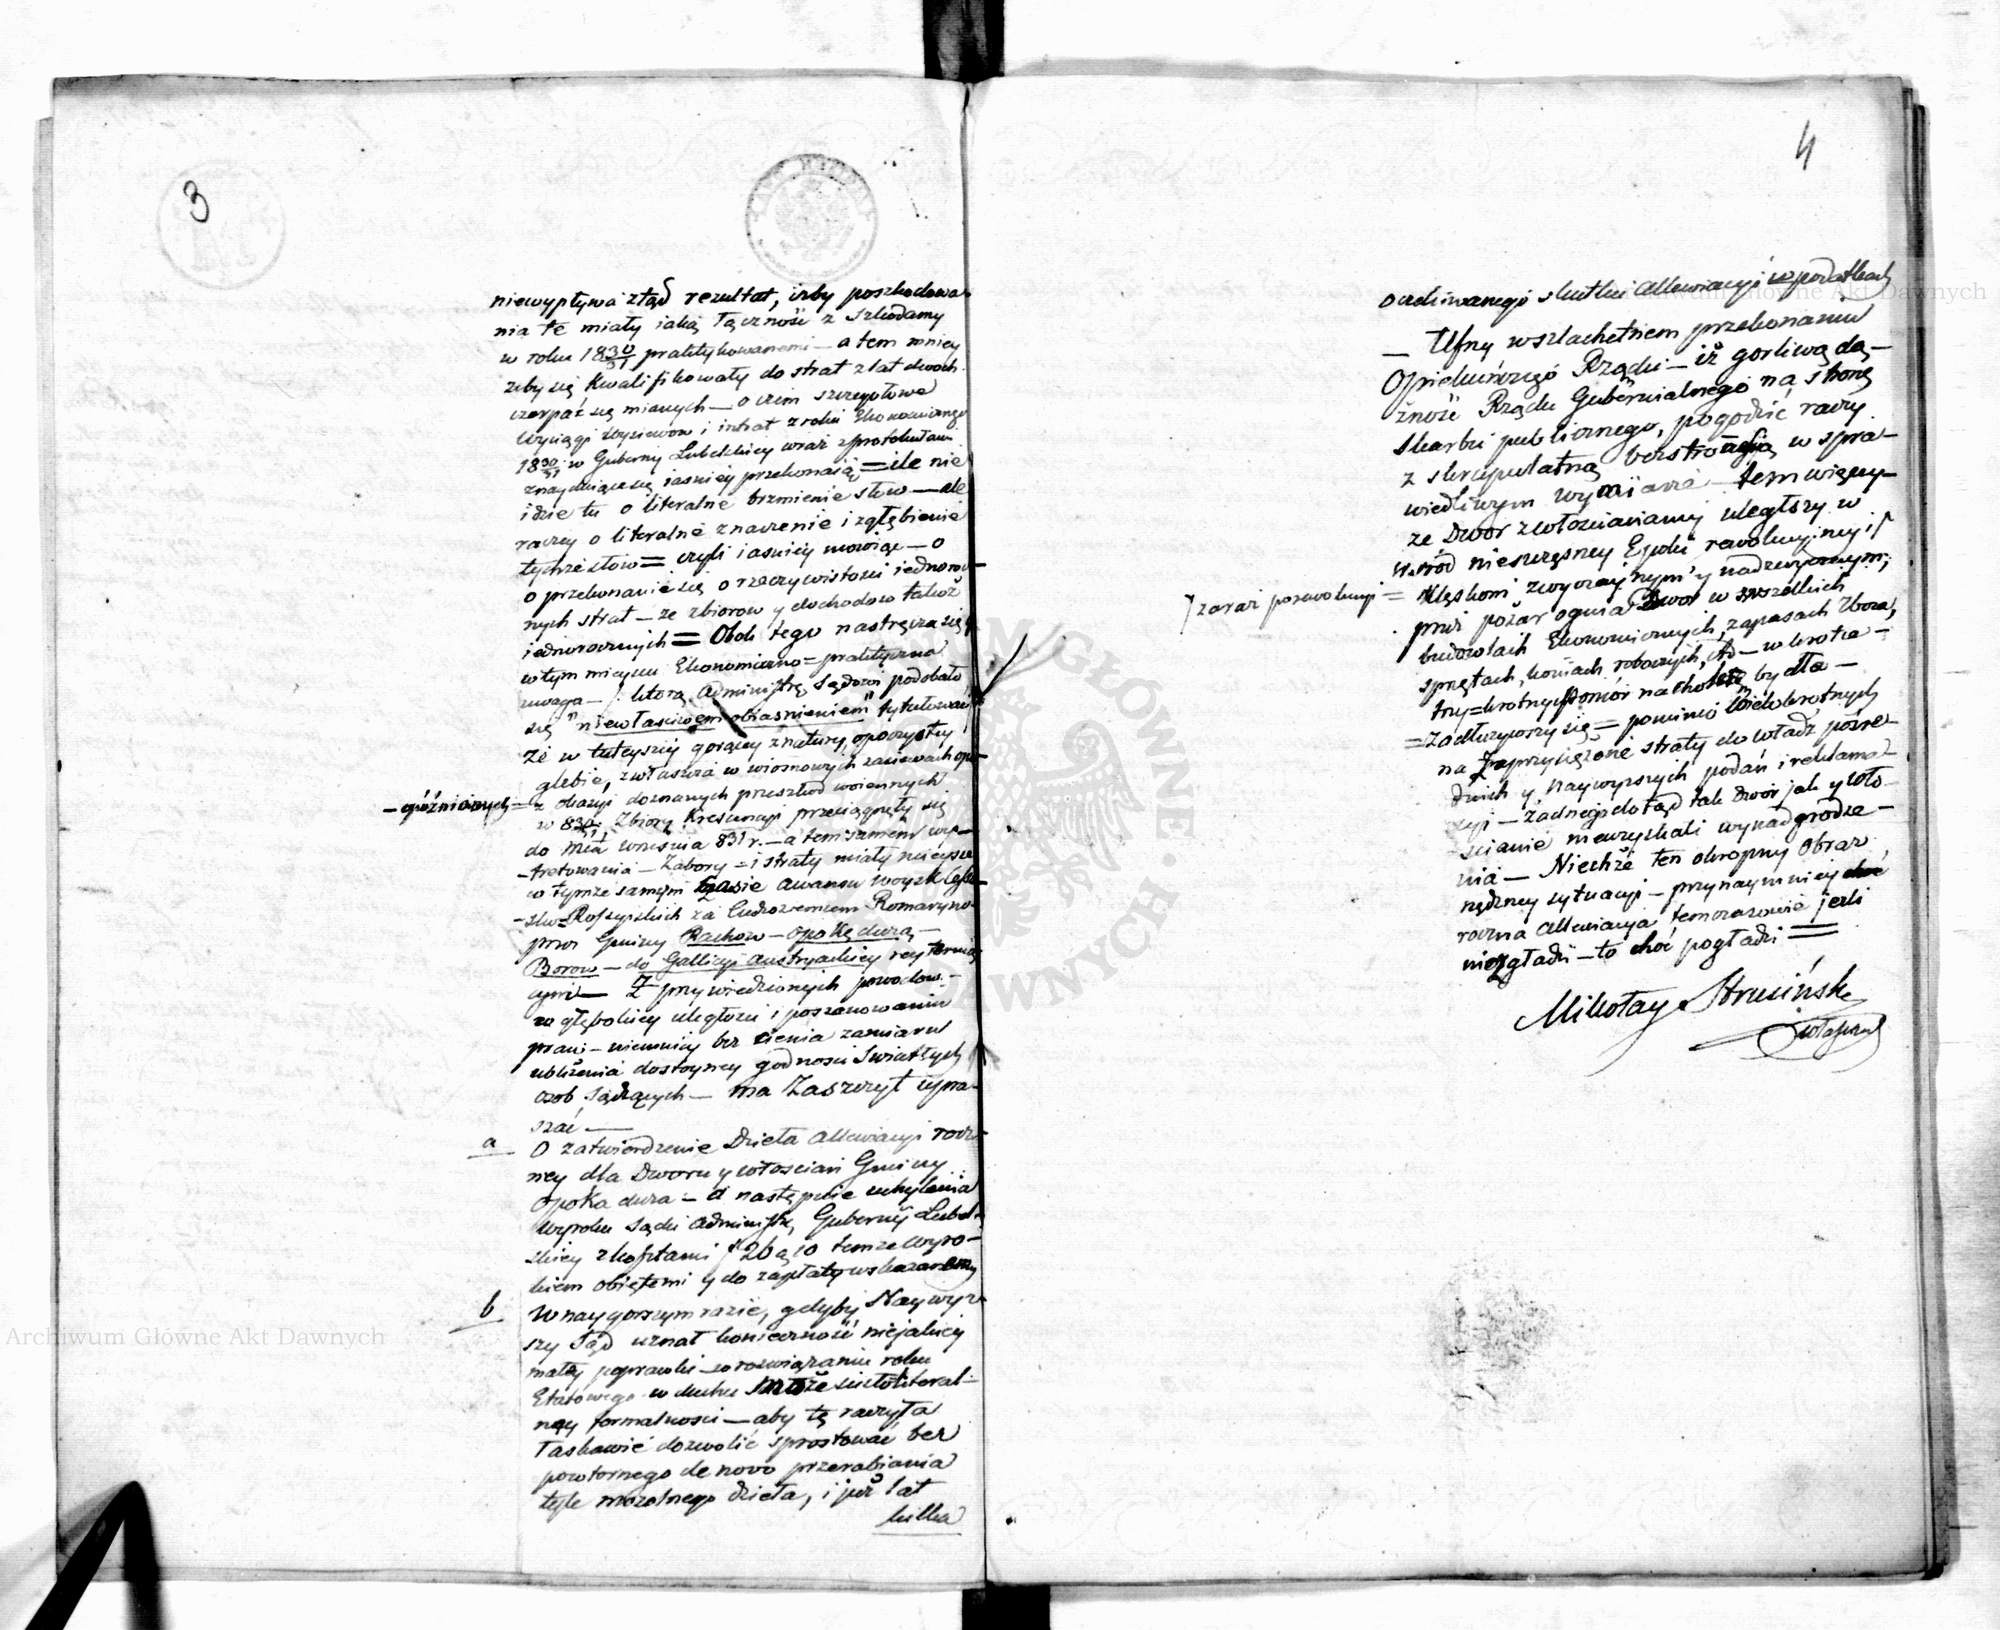 3
niewypływa ztąd rezultat, iżby poszkodowa-
nia te miały iaką łączność z Szkodamy
w roku 1830/31 praktykowanemi — a tem mniey
żeby się kwalifikowały do strat z lat dwoch
czerpać się mianych — o czem szczegułowe
Wyciągi Wysiewow i intrat z roku Ekonomicznego
1830/31 w Guberny Lubelskiey wraz z protokułami
znayduiące się iaśniey przekonaią = ile nie
idzie tu o literalne brzmienie słow — ale
raczey o literalne znaczenie i zgłębienie
tychże słow = czyli iaśniey mowiąc — o
o przekonanie się o rzeczywistości iednoro-
nych strat — ze zbiorow y dochodow takoż
iednorocznych = Obok tego nastręcza się
w tym mieyscu Ekonomiczno = praktyczna
uwaga — / ktorą Administrc. Sądowi podobało
się "niewłaściwem obiasnieniem" tytułować /
Że w tuteyszey gorącey z natury, opoczystey
glebie, zwłaszcza w wiosnowych zasiewach opo-
— opóźnionych = z okazyi doznanych przeszkod woiennych
w 830/31 Zbiory Krescencyi przeciągnęły się
do Mca Września 831 r. — a tem samem wy-
-tretowania — Zabory = i straty miały mieysce
w tymże samym czasie awansu woysk Cesar-
-sko = Rossyiskich za Cudzoziemcem Romaryno-
przez Gminy Rachow — opokę dużą —
Borow — do Gallicyi austryackiey
— Z przywiedzionych powodow —
w głębokiey uległości i poszanowaniu
praw — niemniey bez cienia zamiaru
ubliżenia dostoyney godnosci Swiatłych
osob Sądzących — ma Zaszczyt upra-
szać —
a O zatwierdzenie Dzieła allewiacyi rocz-
ney dla Dworu y włościan Gminy
Opoka duża — a następnie uchylenia
Wyroku Sądu Administr. Gubernij Lubel-
skiey z kosztami temze Wyro-
kiem obiętemi y do zapłaty wskazanemi
b W naygorszym razie, gdyby Naywyż-
szy Sąd uznał konieczność niejakiey
małey poprawki — w rozwiązaniu roku
Etatowego w duchu literal-
ney formalnosci — aby tę raczył
łaskawie dozwolić sprostować bez
powtornego de novo przerabiania
tyle mozolnego dzieła, i już lat
kilka
4
oczekiwanego skutku allewiacyi w podatkach
— Ufny w szlachetnem przekonaniu
Opiekuńczego Rządu — iż gorliwą dą-
żność Rządu Gubernialnego na stronę
Skarbu publicznego, pogodzić raczy
z skrupulatną bezstronnością w spra-
wiedliwym wymiarze — tem więcey
że Dwor z włościanamy uległszy w
wśród nieszczęsney Epoki rewolucyiney i /
/ zaraz porewolucyi = Klęskom zwyczaynym y nadzwyczaynym;
przez pożar ognia Dwor w wszelkich
budowlach Ekonomicznych, zapasach Zboża,
sprzętach, koniach roboczych, etc — w krotce —
trzy = krotny Pomór na bydła —
= Zadłużywszy się = pomimo Wielokrotnych
na Zaprzysiężone straty do władz pośre-
dnich y naywyższych podań i reklama-
cyi — żadnego dotąd tak Dwór jak y włó-
ścianie nieuzyskali wynadgrodze-
nia — Niechże ten okropny obraz
nędzney sytuacyi — przynaymniey
roczna allewiacya temczasowie jeśli
nie zgładzi — to choć pogładzi =
Mikołay Strusiński